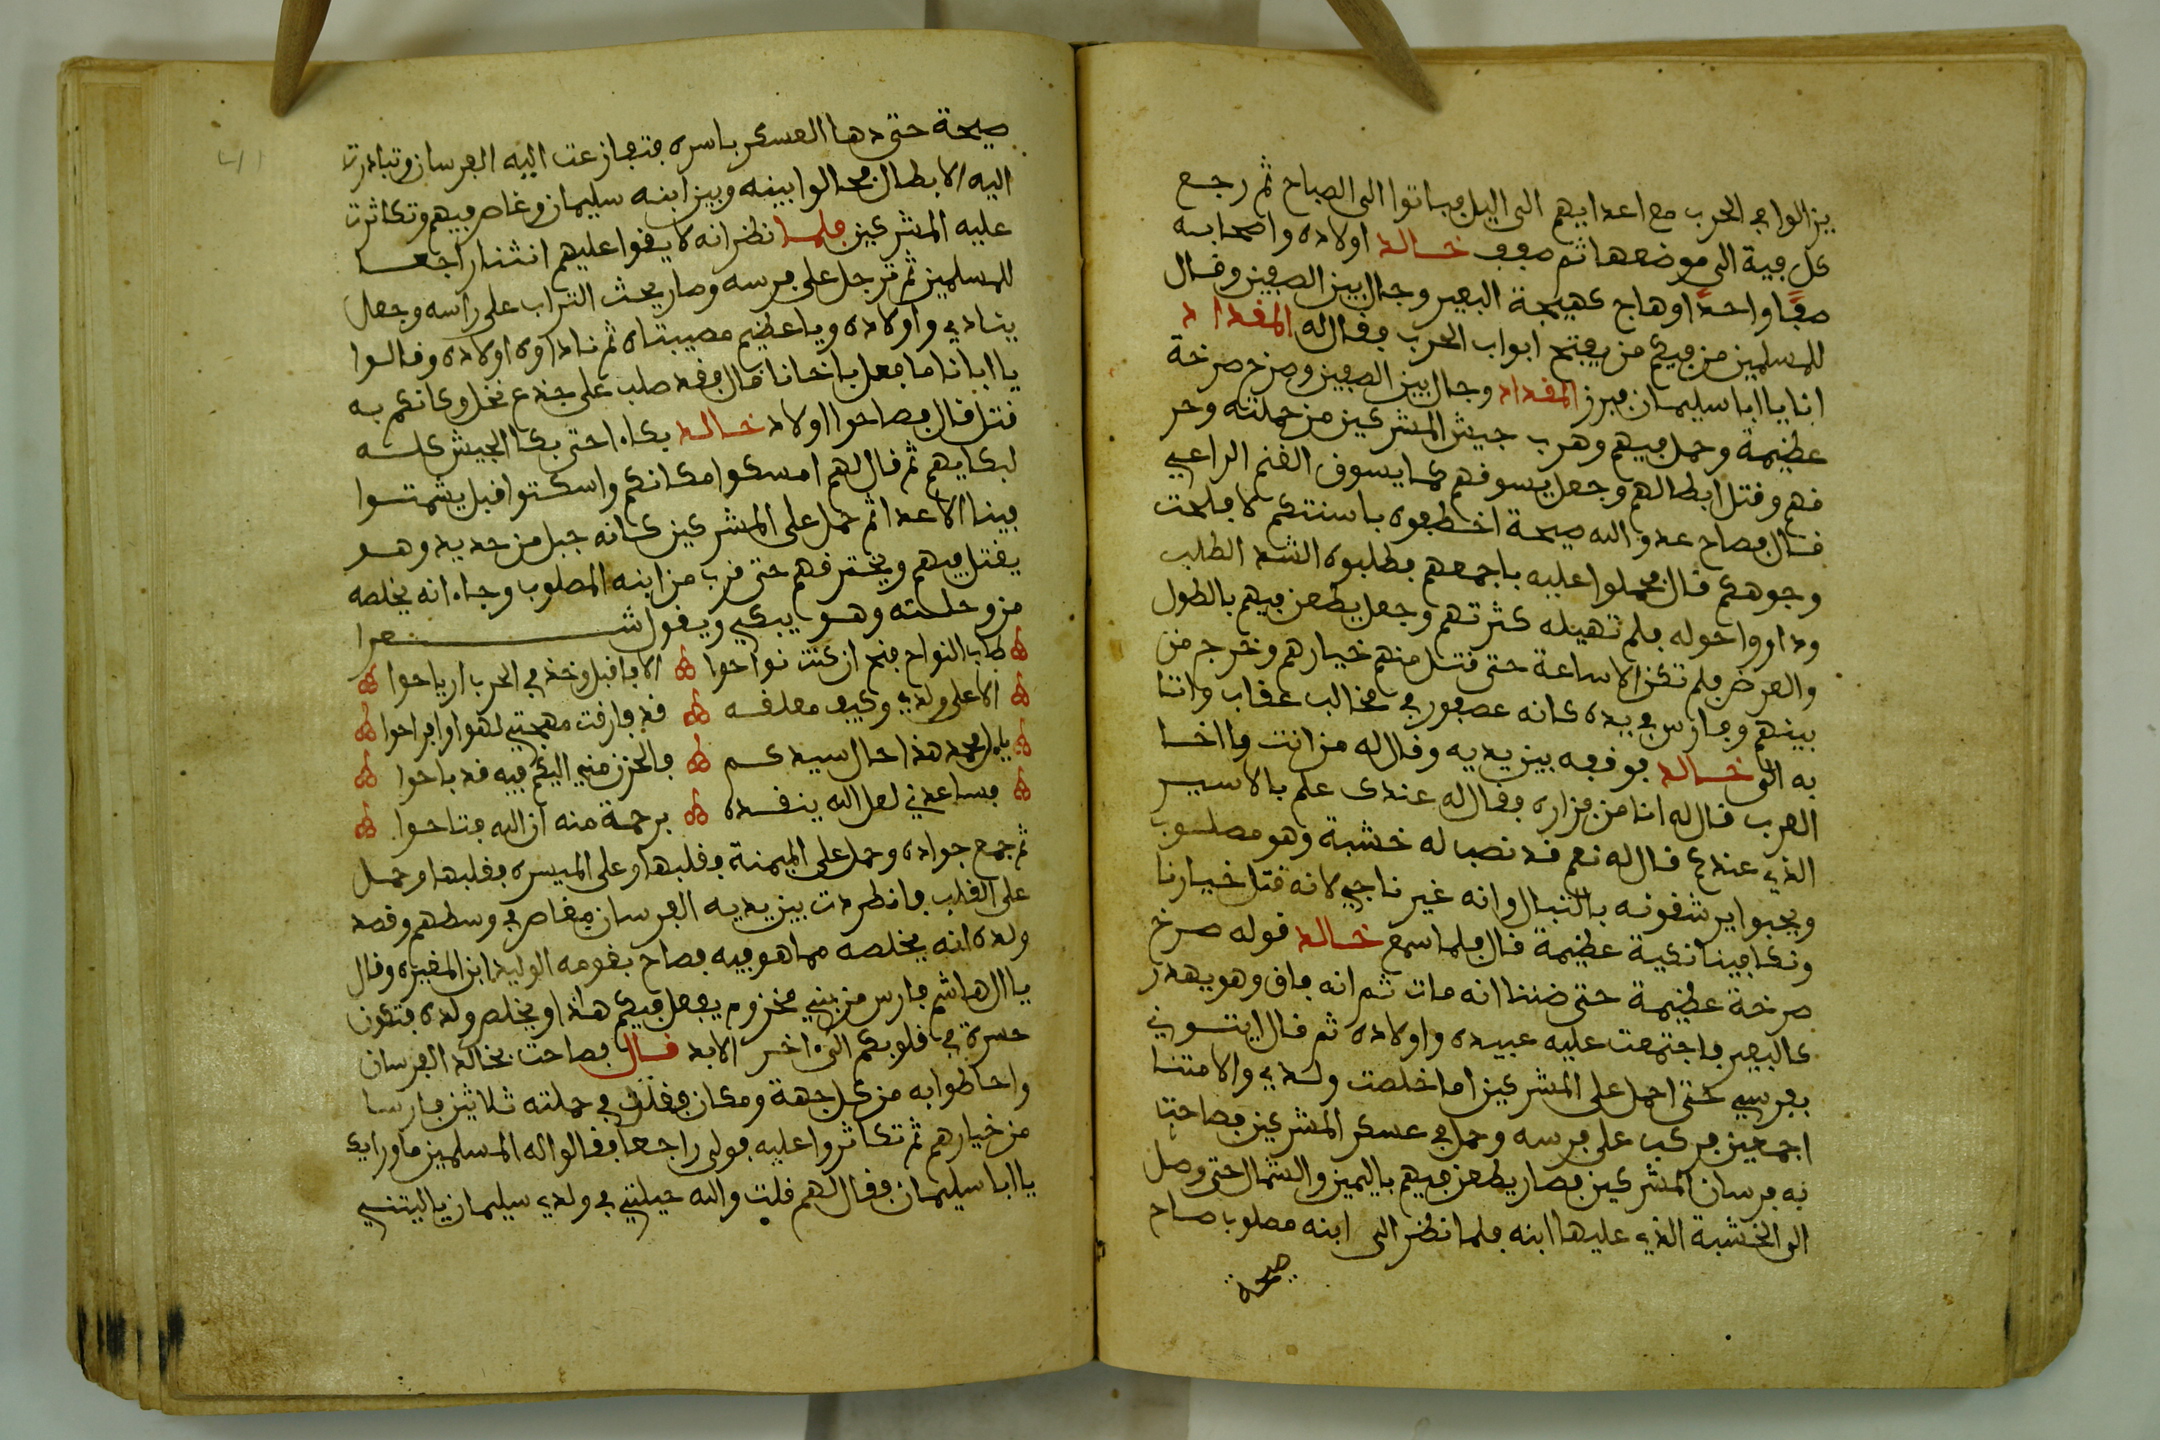 يزالوا في الحرب مع اعدايهم الى اليل فباتوا الى الصباح ثم رجع
كل فية الى موضعها ثم صفف خالد اولاده واصحابه
صفا واحدا وهاج كهيجة البعير وجال بين الصفين وقال
للمسلمين من فيكم من يفتح ابواب الحرب فقال له المقداد
انا يا ابا سليمان فبرز المقداد وجال بين الصفين وصرخ صرخة
عظيمة وحمل فيهم وهرب جيش المشركين من حملته وحر
فهم وقتل ابطالهم وجعل يسوقهم كما يسوق الغنم الراعي
قال فصاح عدو الله صيحة اخطفوه باسنتكم لا فلحت
وجوهكم قال فحملوا عليه باجمعهم فطلبوه اشد الطلب
وداروا حوله فلم تهيله كثرتهم وجعل يطعن فيهم بالطول
والعرض فلم تكن الا ساعة حتى قتل منهم خيارهم وخرج من
بينهم وفارس في يده كانه عصفور في مخالب عقاب واتا
به الى خالد فوقفه بين يديه وقال له من انت يا اخا
العرب قال له انا من فزاره فقال له عندك علم بالاسير
الذي عندكم قال له نعم قد نصبا له خشبة وهو مصلوب
ويحبوا يرشقونه بالنبال وانه غير ناجي لانه قتل خيارنا
ونكا فينا نكية عظيمة قال فلما سمع خالد قوله صرخ
صرخة عظيمة حتى ضننا انه مات ثم انه فاق وهو يهدر
كالبعير فاجتمعت عليه عبيده واولاده ثم قال ايتوني
بفرسي حتى احمل على المشركين اما خلصت ولدي والا متنا
اجمعين فركب على فرسه وحمل في عسكر المشركين فصاحت
به فرسان المشركين فصار يطعن فيهم باليمين والشمال حتى وصل
الى الخشبة الذي عليها ابنه فلما نظر الى ابنه مصلوب صاح
صيحة
صيحة حتى دها العسكر باسره فتفازعت اليه الفرسان وتبادرت
اليه الابطال فحالوا بينه وبين ابنه سليمان وغاص فيهم وتكاثرت
عليه المشركين فلما نظر انه لا يقوا عليهم انثنا راجعا
للمسلمين ثم ترجل على فرسه وصار يحث التراب على راسه وجعل
ينادي وا ولاده ويا عظيم مصيبتاه ثم نادا وه اولاده وقالوا
يا ابانا ما فعل باخانا قال فقد صلب على جذع نخل وكانكم به
قتل قال فصاحوا اولاد خالد بكاء حتى بكا الجيش كله
لبكايهم ثم قال لهم امسكوا مكانكم واسكتوا قبل يشمتوا
فينا الاعدا ثم حمل على المشركين كانه جبل من حديد وهو
يقتل فيهم ويخترقهم حتى قرب من ابنه المصلوب وجاء انه يخلصه
من وحلته وهو يبكي ويقول شعرا
طاب النواح فنح ان كنت نواحوا الا فاقبل وخذ في الحرب ارياحوا
الا على ولدي وكيف معلقه قد فارقت مهجتي لهوا وافراحوا
يال محمد هذا حال سيدكم فالحزن مني اليكم فيه قد باحوا
فساعدني لعل الله ينقده برحمة منه ان الله فتاحوا
ثم جمع جواده وحمل على الميمنة فقلبها وعلى الميسره فقلبها وحمل
على القلب فانطردت بين يديه الفرسان فغاص في وسطهم وقصد
ولده انه يخلصه مما هو فيه فصاح بقومه الوليد ابن المغيره وقال
يا ال هاشم فارس من بني مخزوم يفعل فيكم هاذا ويخلص ولده فتكون
حسرة في قلوبكم الى اخر الابد قال فصاحت بخالد الفرسان
واحاطوا به من كل جهة ومكان فقتل في حملته ثلاثين فارسا
من خيارهم ثم تكاثروا عليه فولى راجعا فقالوا له المسلمين ما ورايك
يا ابا سليمان فقال لهم قلت والله حيلتي في ولدي سيلمان ياليتني